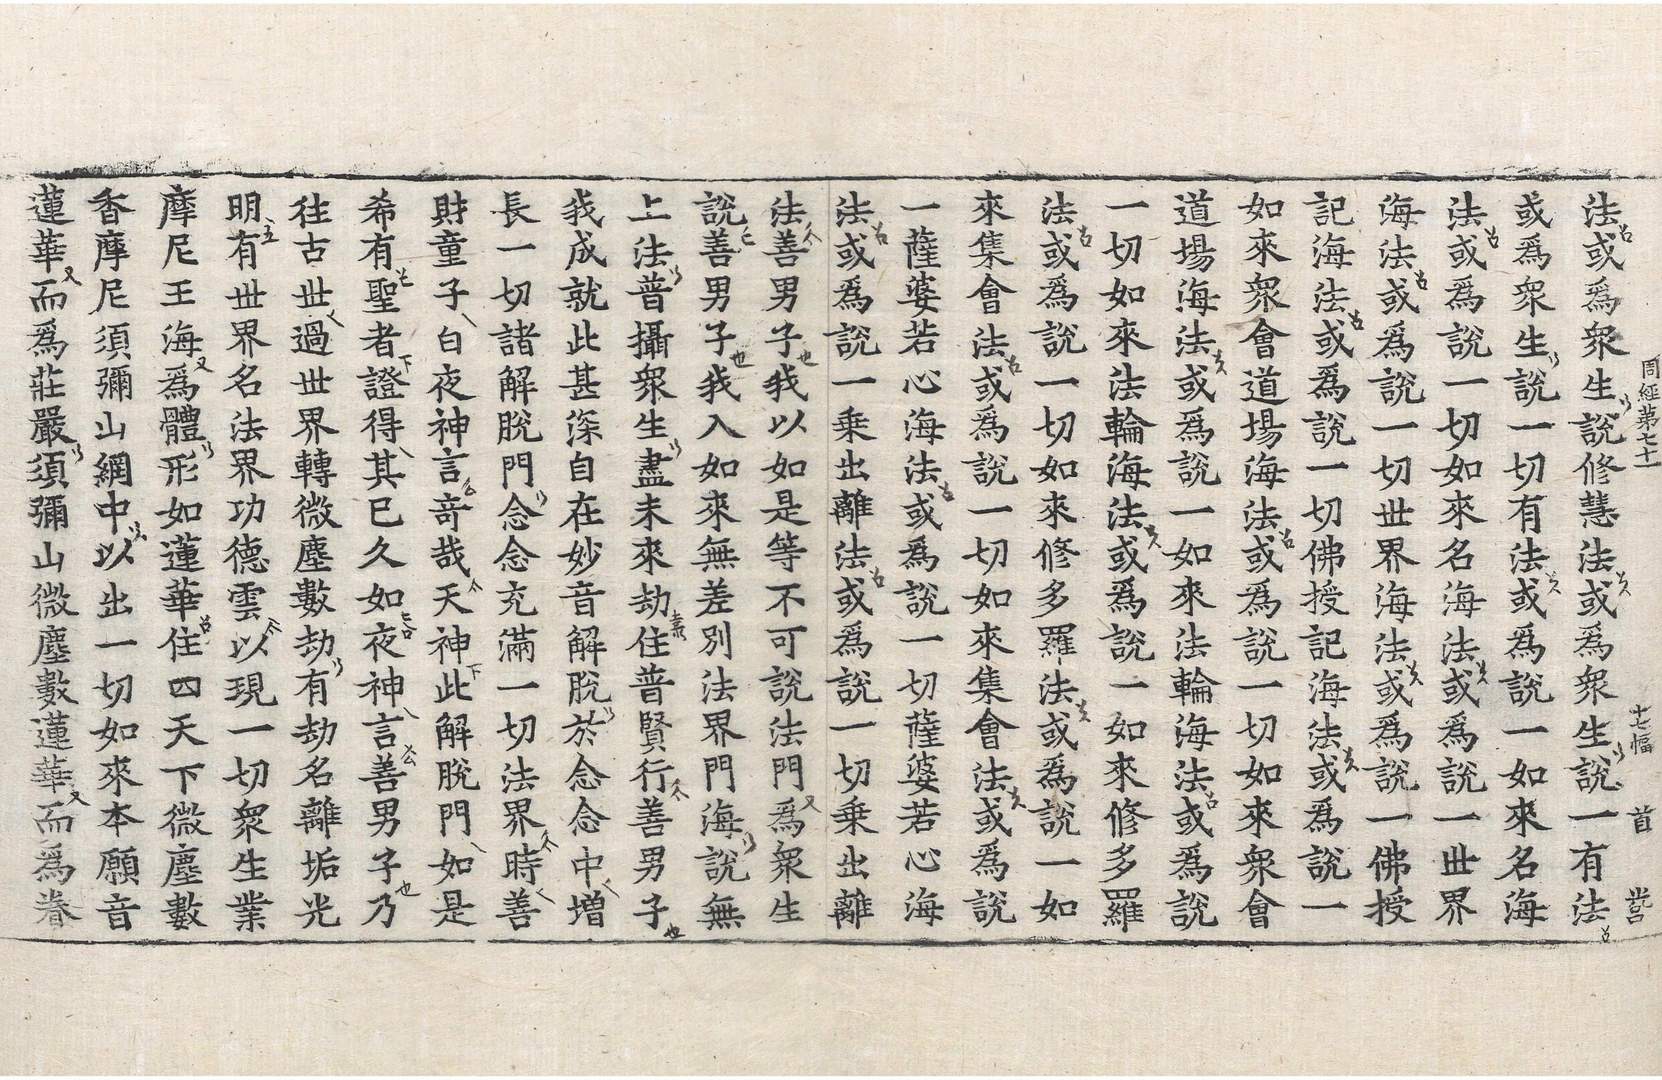 周經第七十一　十七幅　首
法或爲衆生說修慧法或爲衆生說一有法
或爲衆生說一切有法或爲說一如來名海
法或爲說一切如來名海法或爲說一世界
海法或爲說一切世界海法或爲說一佛授
記海法或爲說一切佛授記海法或爲說一
如來衆會道場海法或爲說一切如來衆會
道場海法或爲說一如來法輪海法或爲說
一切如來法輪海法或爲說一如來修多羅
法或爲說一切如來修多羅法或爲說一如
來集會法或爲說一切如來集會法或爲說
一薩婆若心海法或爲說一切薩婆若心海
法或爲說一乗出離法或爲說一切乗出離
法善男子我以如是等不可說法門爲衆生
說善男子我入如來無差別法界門海說無
上法普攝衆生盡未來劫住普賢行善男子
我成就此甚深自在妙音解脫於念念中增
長一切諸解脫門念念充滿一切法界時善
財童子白夜神言奇哉天神此解脫門如是
希有聖者證得其已久如夜神言善男子乃
往古世過世界轉微塵數劫有劫名離垢光
明有世界名法界功德雲以現一切衆生業
摩尼王海爲體形如蓮華住四天下微塵數
香摩尼須彌山網中以出一切如來本願音
蓮華而爲莊嚴須彌山微塵數蓮華而爲眷